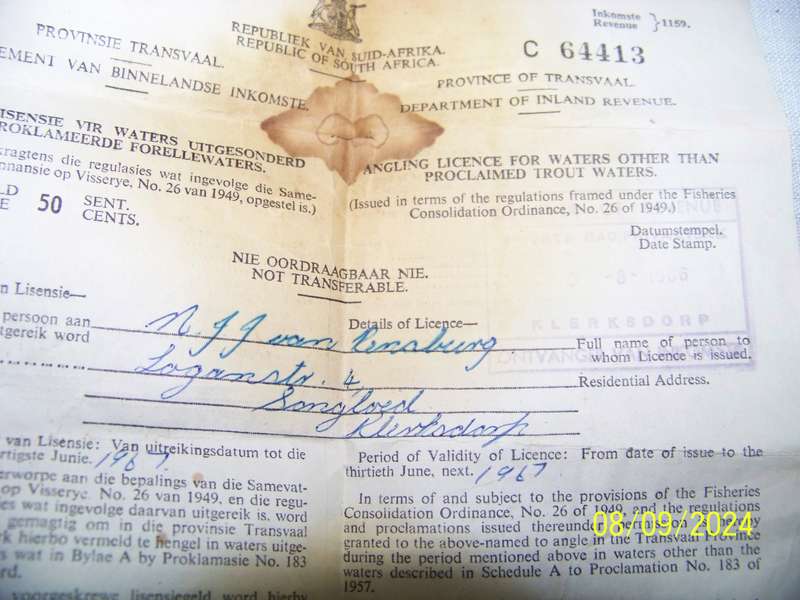 REPUBLIEK VAN SUID-AFRIKA.
REPUBLIC OF SOUTH AFRICA.
Inkomste
Revenue } 1159.
C 64413
PROVINSIE TRANSVAAL.
EMENT VAN BINNELANDSE INKOMSTE.
PROVINCE OF TRANSVAAL
DEPARTMENT OF INLAND REVENUE.
ISENSIE VIR WATERS UITGESONDERD
ROKLAMEERDE FORELLEWATERS.
kragtens die regulasies wat ingevolge die Same-
nnansie op Visserye, No. 26 van 1949, opgestel is.)
ANGLING LICENCE FOR WATERS OTHER THAN
PROCLAIMED TROUT WATERS.
(Issued in terms of the regulations framed under the Fisheries
Consolidation Ordinance, No. 26 of 1949.)
50 SENT.
CENTS.
Datumstempel.
Date Stamp.
NIE OORDRAAGBAAR NIE.
NOT TRANSFERABLE.
KLERKSDORP
ONTVANG
n Lisensie—
Details of Licence—
persoon aan
itgereik word
N J J van Rensburg
Full name of person to
whom Licence is issued.
Loganstr. 4,
Residential Address.
Songloed
Klerksdorp
van Lisensie: Van uitreikingsdatum tot die
rtigste Junie. 1967.
Period of Validity of Licence: From date of issue to the
thirtieth June, next. 1967
erworpe aan die bepalings van die Samevat-
op Visserye, No. 26 van 1949, en die regu-
s wat ingevolge daarvan uitgereik is, word
gemagtig om in die provinsie Transvaal
rk hierbo vermeld te hengel in waters uitge-
s wat in Bylae A by Proklamasie No. 183
rd.
voorgeskrewe lisensiegeld word hierby
In terms of and subject to the provisions of the Fisheries
Consolidation Ordinance, No. 26 of 1949, and the regulations
and proclamations issued thereunder
granted to the above-named to angle in the Transvaal Province
during the period mentioned above in waters other than the
waters described in Schedule A to Proclamation No. 183 of
1957.
08/09/2024